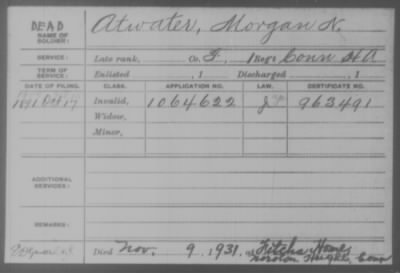 DEAD Atwater, Morgan N.
NAME OF SOLDIER:
SERVICE: Late rank, Co. F, 1 Reg't Conn H A
TERM OF SERVICE: Enlisted , 1 Discharged , 1
DATE OF FILING. CLASS. APPLICATION NO. LAW. CERTIFICATE NO.
1891 Oct 17 Invalid, 1064622 J 963491
Widow,
Minor,
ADDITIONAL SERVICES:
REMARKS:
Died Nov. 9, 1931, at Fitch's Home
Noroton Heights, Conn